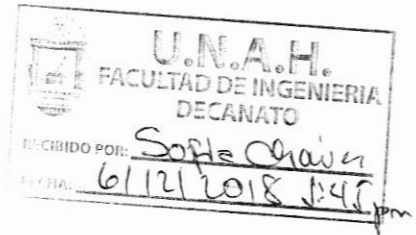 U.N.A.H.
FACULTAD DE INGENIERIA
DECANATO
RECIBIDO POR: Sofia Chavez
FECHA: 6/12/2018 1:45 pm